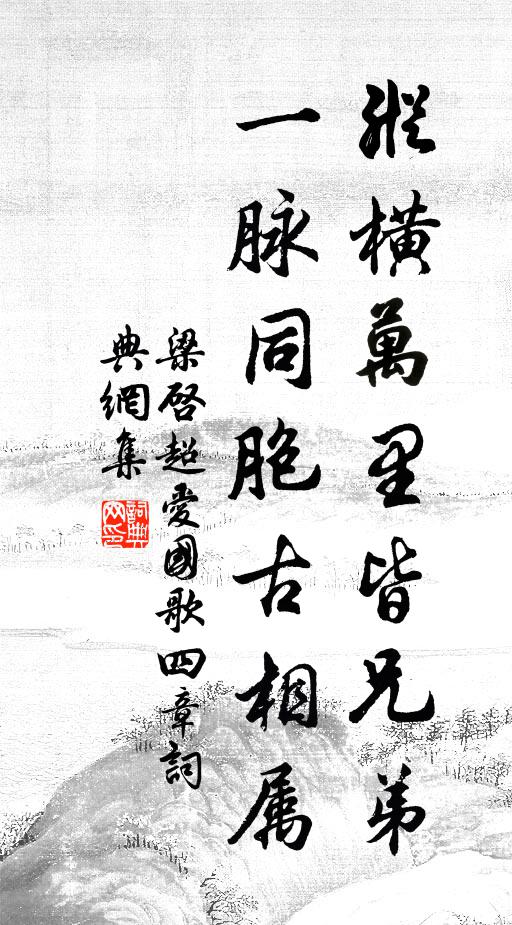 縱橫萬里皆兄弟
一脉同胞古相属
梁启超愛國歌四章詞
典網集
詞典
网印